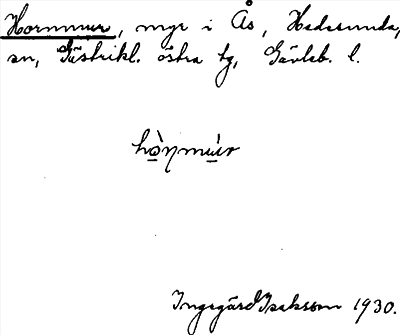 Hornmur, mgr i Ås, Hedesunda
sn, Gästrikl. östra tg, Gävleb. l.
hò̱ŋmú̱r
Ingegärd Isaksson 1930.